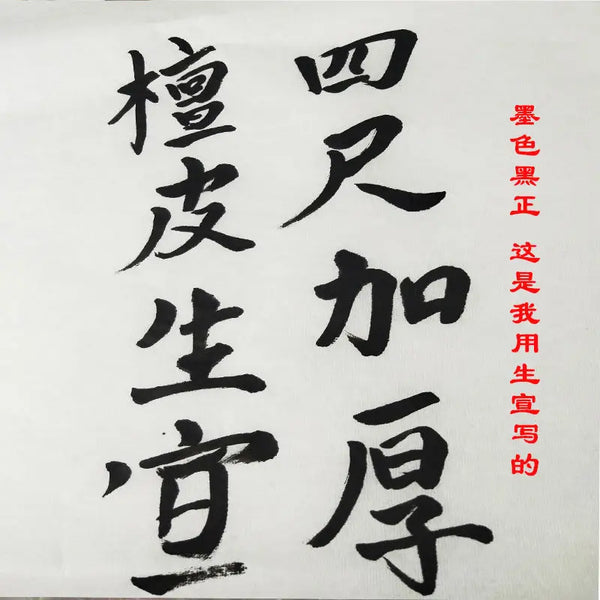 四尺加厚
檀皮生宣
墨色黑正 这是我用生宣写的